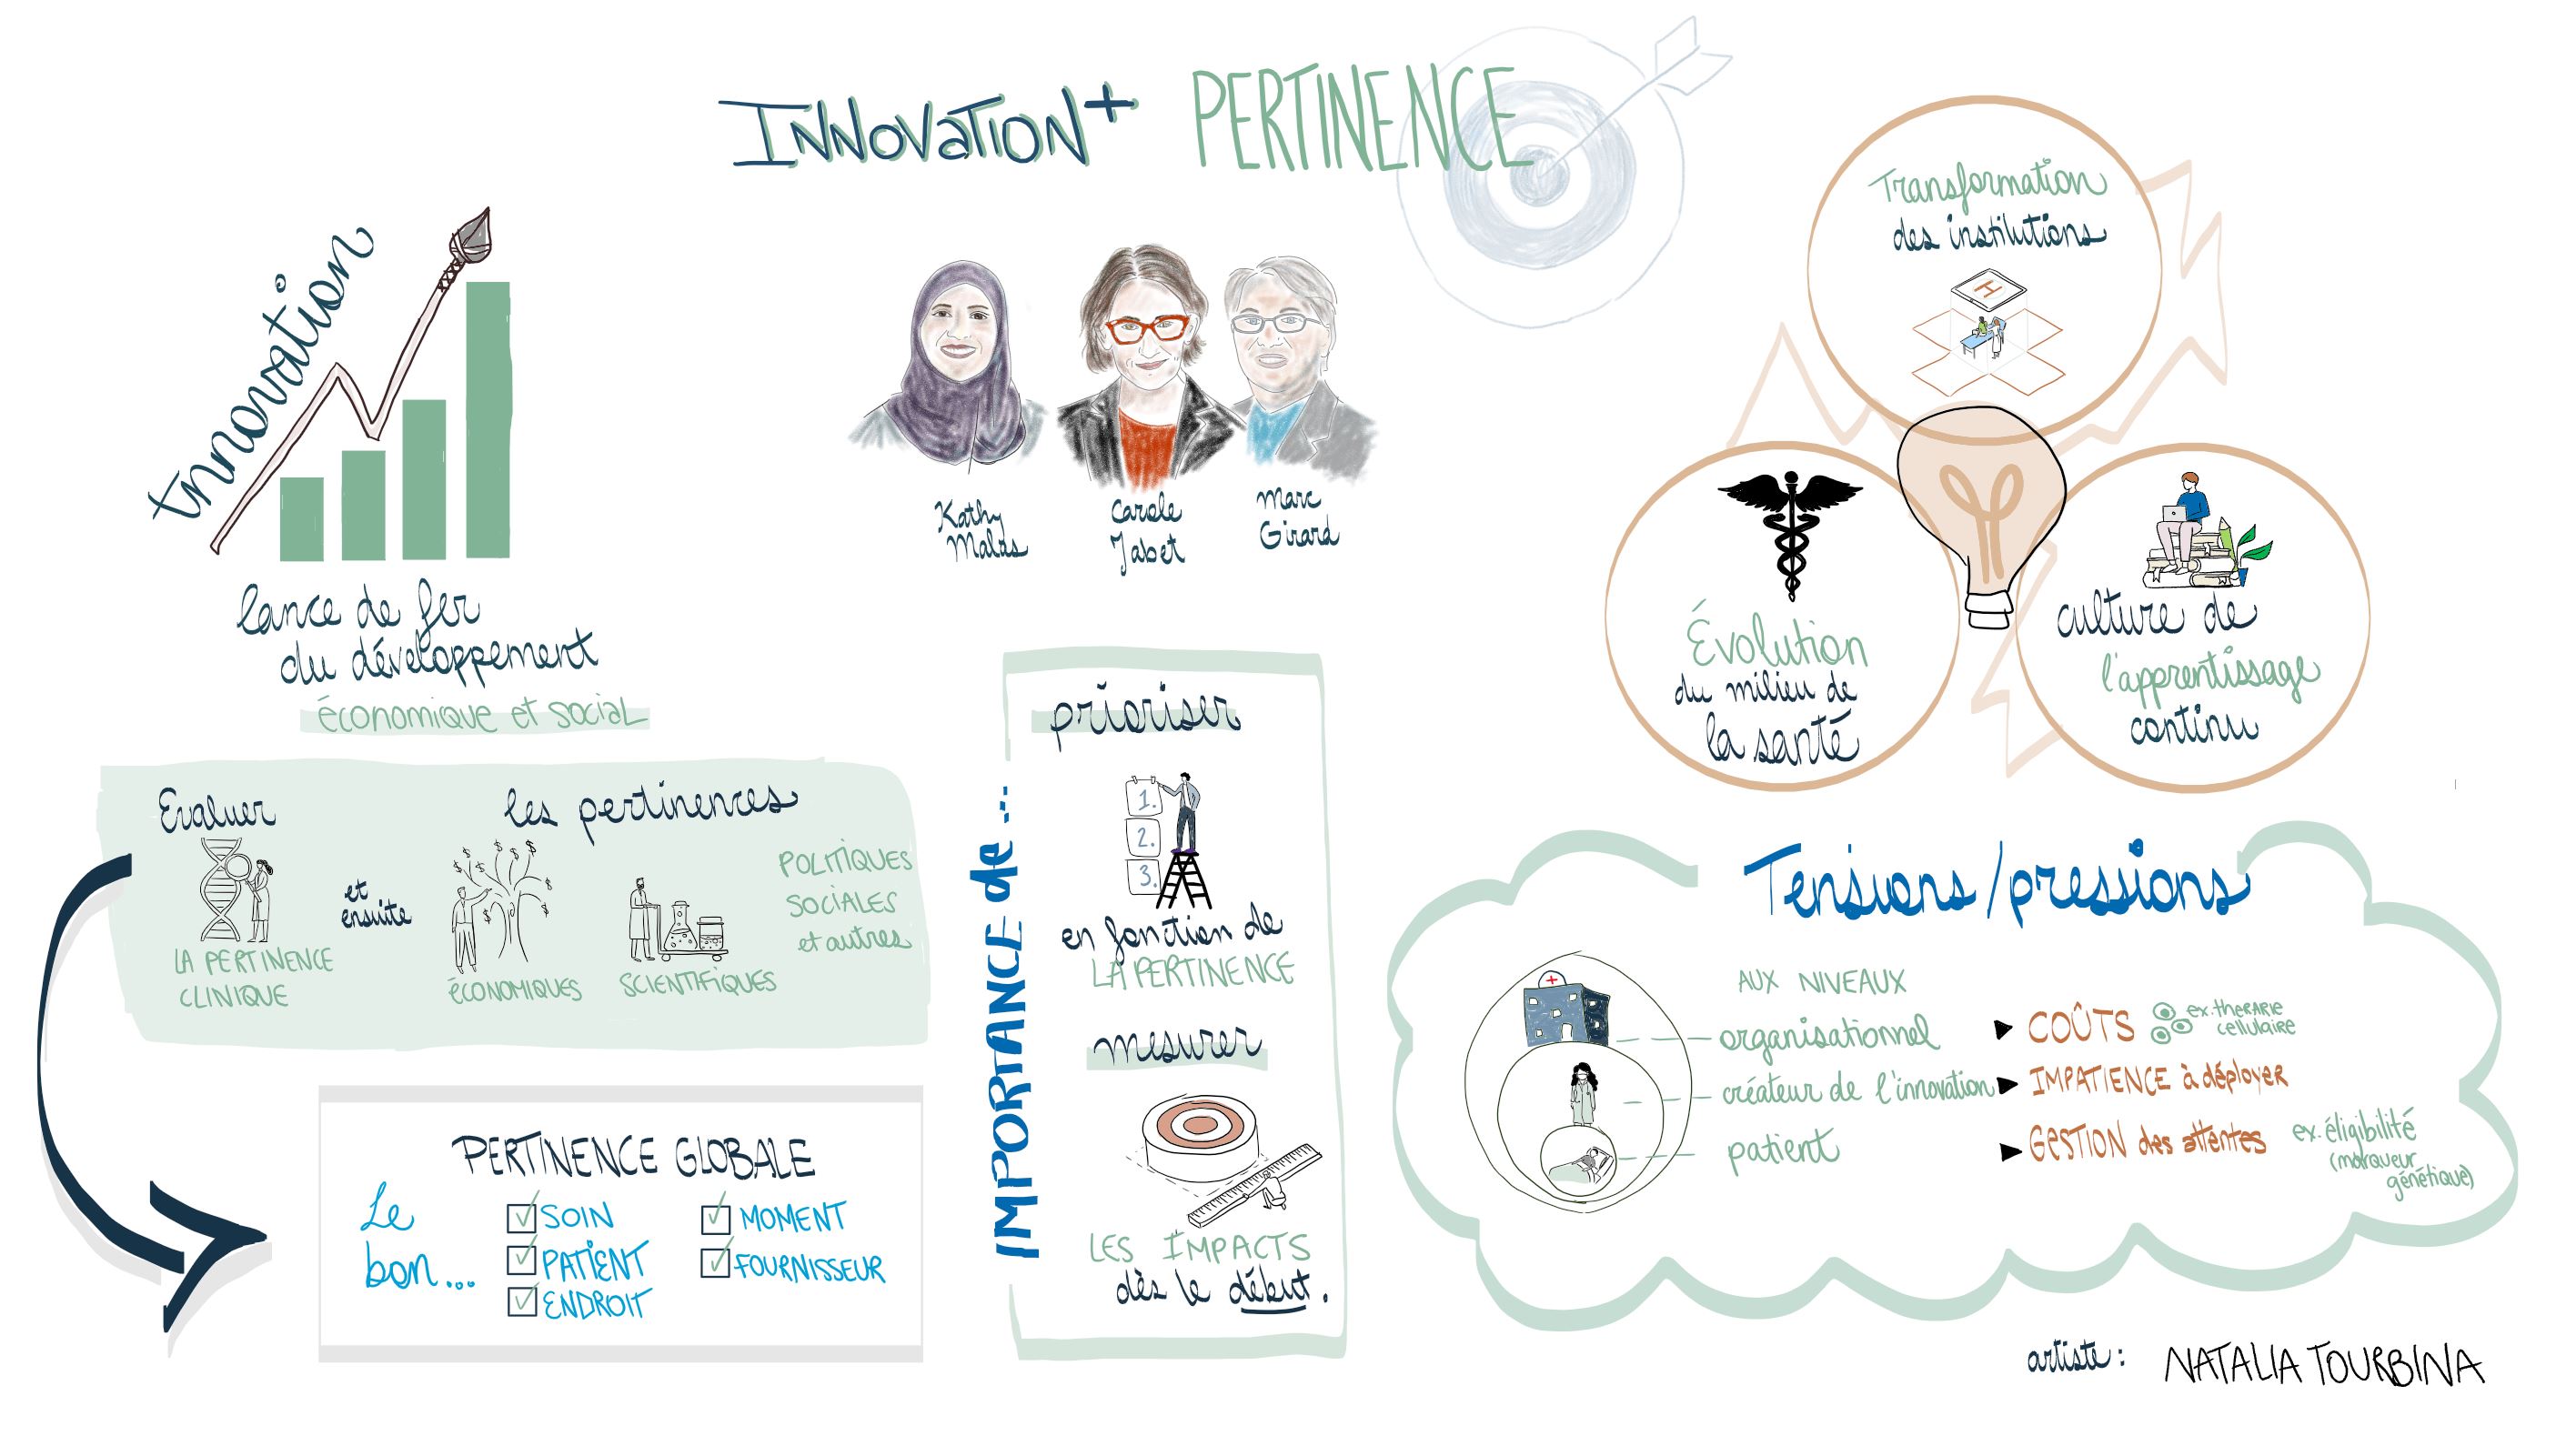 INNOVATION + PERTINENCE
Innovation
lance de fer
du développement
économique et social
Kathy
Malas
Carole
Jabet
Marc
Girard
Transformation
des institutions
H
Évolution
du milieu de
la santé
culture de
l'apprentissage
continu
Evaluer
les pertinences
LA PERTINENCE
CLINIQUE
et
ensuite
ÉCONOMIQUES
SCIENTIFIQUES
POLITIQUES
SOCIALES
et autres
PERTINENCE GLOBALE
Le
bon...
SOIN
PATIENT
ENDROIT
MOMENT
FOURNISSEUR
IMPORTANCE de ...
prioriser
1.
2.
3.
en fonction de
LA PERTINENCE
mesurer
LES IMPACTS
dès le début.
Tensions/pressions
AUX NIVEAUX
organisationnel
créateur de l'innovation
patient
COÛTS
ex. therapie
cellulaire
IMPATIENCE à déployer
GESTION des attentes
ex. éligibilité
(marqueur
génétique)
artiste : NATALIA TOURBINA